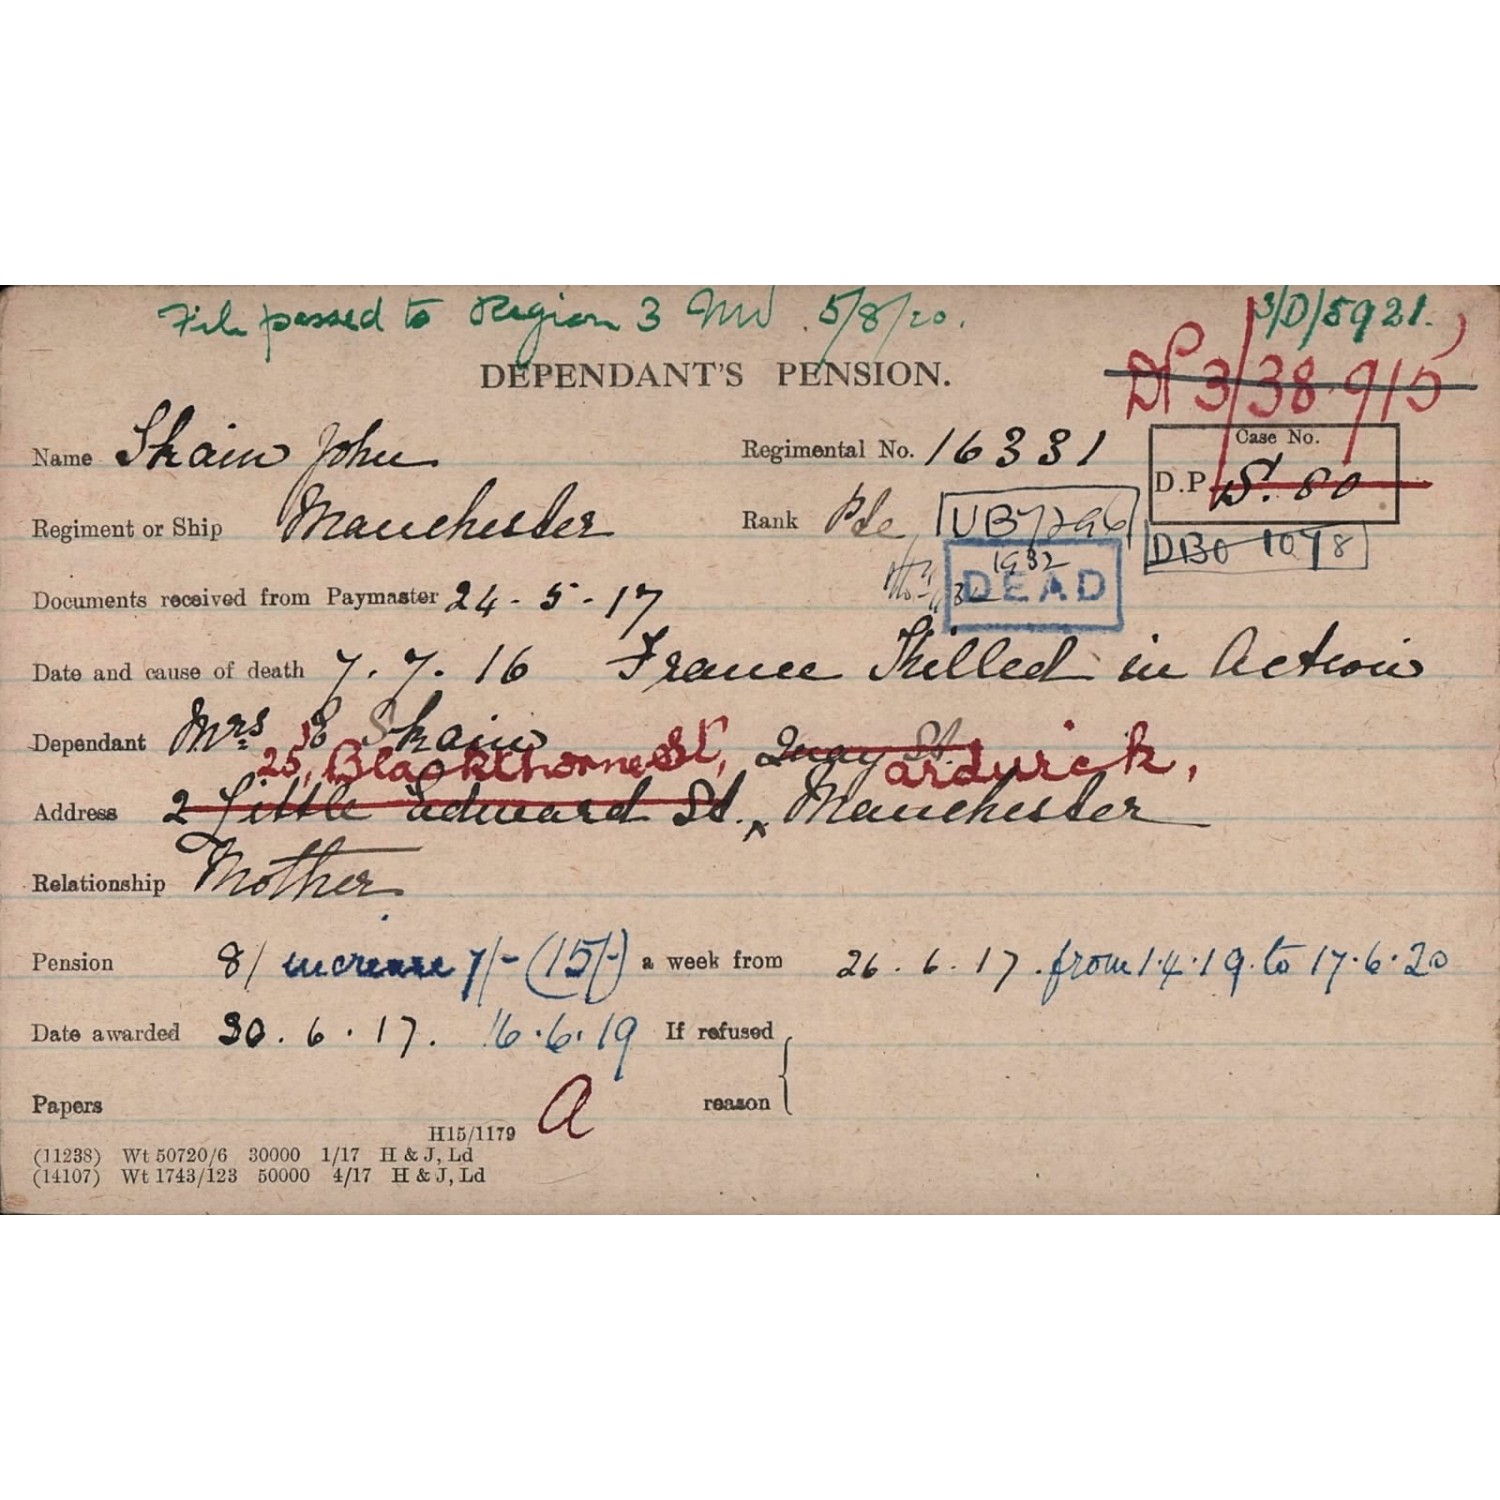 File passed to Region 3 NW 5/8/20.
3/D/5921.
DEPENDANT'S PENSION.
DP 3/38.915
Name Skain John
Regimental No. 16331
Case No.
D.P. S. 80
Regiment or Ship Manchester
Rank Pte
UB7296
DBO 1078
1932
DEAD
Documents received from Paymaster 24 - 5 - 17
Date and cause of death 7. 7. 16 France Killed in Action
Dependant Mrs E Skain
25, Blackthorne St, Quay St. Ardwick,
Address 2 Little Edward St. Manchester
Relationship Mother
Pension 8/ increase 7/- (15/-) a week from 26. 6. 17. from 1.4.19. to 17.6.20
Date awarded 30. 6. 17. 16.6.19 If refused
Papers a reason
H15/1179
(11238) Wt 50720/6 30000 1/17 H & J, Ld
(14107) Wt 1743/123 50000 4/17 H & J, Ld